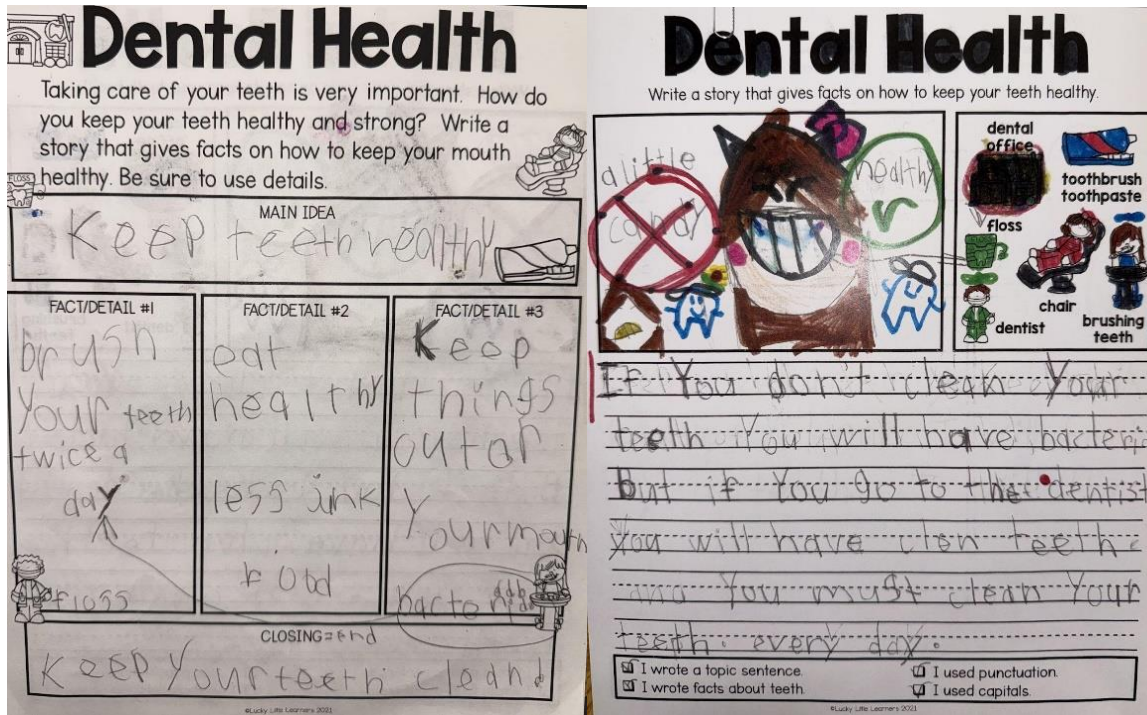 Dental Health
Taking care of your teeth is very important. How do
you keep your teeth healthy and strong? Write a
story that gives facts on how to keep your mouth
healthy. Be sure to use details.
FLOSS
MAIN IDEA
Keep teeth healthy
FACT/DETAIL #1
brush
your teeth
twice a
day
floss
FACT/DETAIL #2
eat
healthy
less junk
food
FACT/DETAIL #3
Keep
things
out of
Your mouth
CLOSING=end
Keep Your teeth clean
©Lucky Little Learners 2021
Dental Health
Write a story that gives facts on how to keep your teeth healthy.
a little
candy
healthy
dental
office
toothbrush
toothpaste
floss
chair
dentist
brushing
teeth
If You don't clean your
teeth You will have bacteri
but if You go to the dentist
you will have clen teeth.
and You must clean Your
teeth. every day.
I wrote a topic sentence.
I wrote facts about teeth.
I used punctuation.
I used capitals.
©Lucky Little Learners 2021